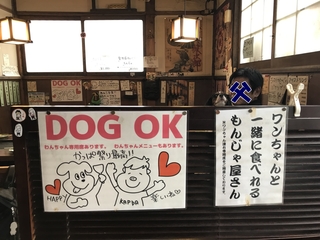 DOG OK
わんちゃん専用席あります。 わんちゃんメニューもあります。
かっぱ祭り最高!!
HAPPY
KAPPA
暑いね
ワンちゃんと
一緒に食べれる
もんじゃ屋さん